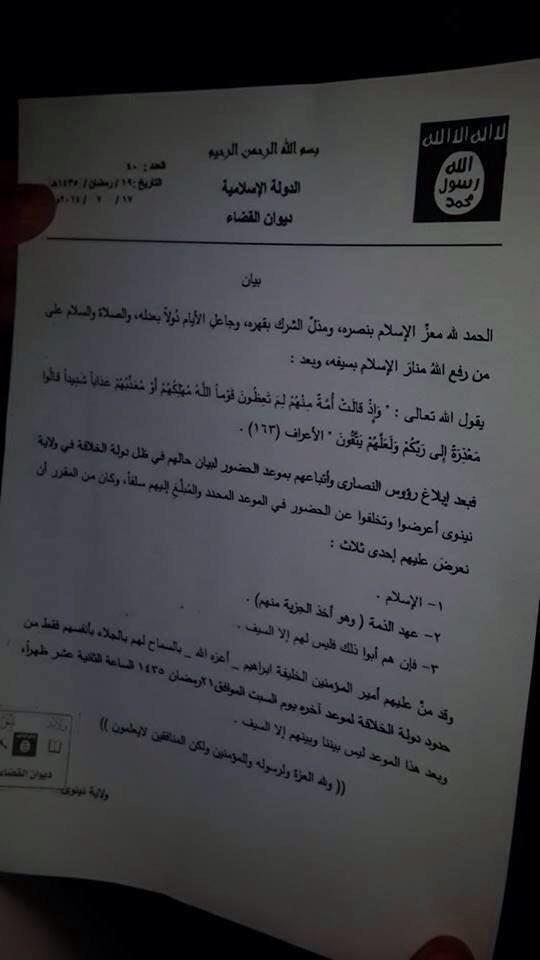 لا اله الا الله
الله
رسول
محمد
بسم الله الرحمن الرحيم
العدد : ٤٠
الدولة الإسلامية
التاريخ :١٩/ رمضان/ ١٤٣٥هـ
١٧ / ٧ / ٢٠١٤م
ديوان القضاء
بيان
الحمد لله معزِّ الإسلام بنصره، ومذلِّ الشرك بقهره، وجاعلِ الأيام دُولاً بعدله، والصلاة والسلام على
من رفع اللهُ منارَ الإسلام بسيفه، وبعد :
يقول الله تعالى : " وَإِذْ قَالَتْ أُمَّةٌ مِنْهُمْ لِمَ تَعِظُونَ قَوْماً اللَّهُ مُهْلِكُهُمْ أَوْ مُعَذِّبُهُمْ عَذَاباً شَدِيداً قَالُوا
مَعْذِرَةً إِلَى رَبِّكُمْ وَلَعَلَّهُمْ يَتَّقُونَ " الأعراف (١٦٣) .
فبعد إبلاغ رؤوس النصارى وأتباعهم بموعد الحضور لبيان حالهم في ظل دولة الخلافة في ولاية
نينوى أعرضوا وتخلفوا عن الحضور في الموعد المحدد والمُبلَّغ إليهم سلفاً، وكان من المقرر أن
نعرض عليهم إحدى ثلاث :
١- الإسلام .
٢- عهد الذمة ( وهو أخذ الجزية منهم) .
٣- فإن هم أبوا ذلك فليس لهم إلا السيف .
وقد منَّ عليهم أمير المؤمنين الخليفة ابراهيم _ أعزه الله _ بالسماح لهم بالجلاء بأنفسهم فقط من
حدود دولة الخلافة لموعد آخره يوم السبت الموافق٢١رمضان ١٤٣٥ الساعة الثانية عشر ظهراً،
وبعد هذا الموعد ليس بيننا وبينهم إلا السيف .
(( ولله العزة ولرسوله وللمؤمنين ولكن المنافقين لايعلمون ))
ديوان القضاء
ولاية نينوى